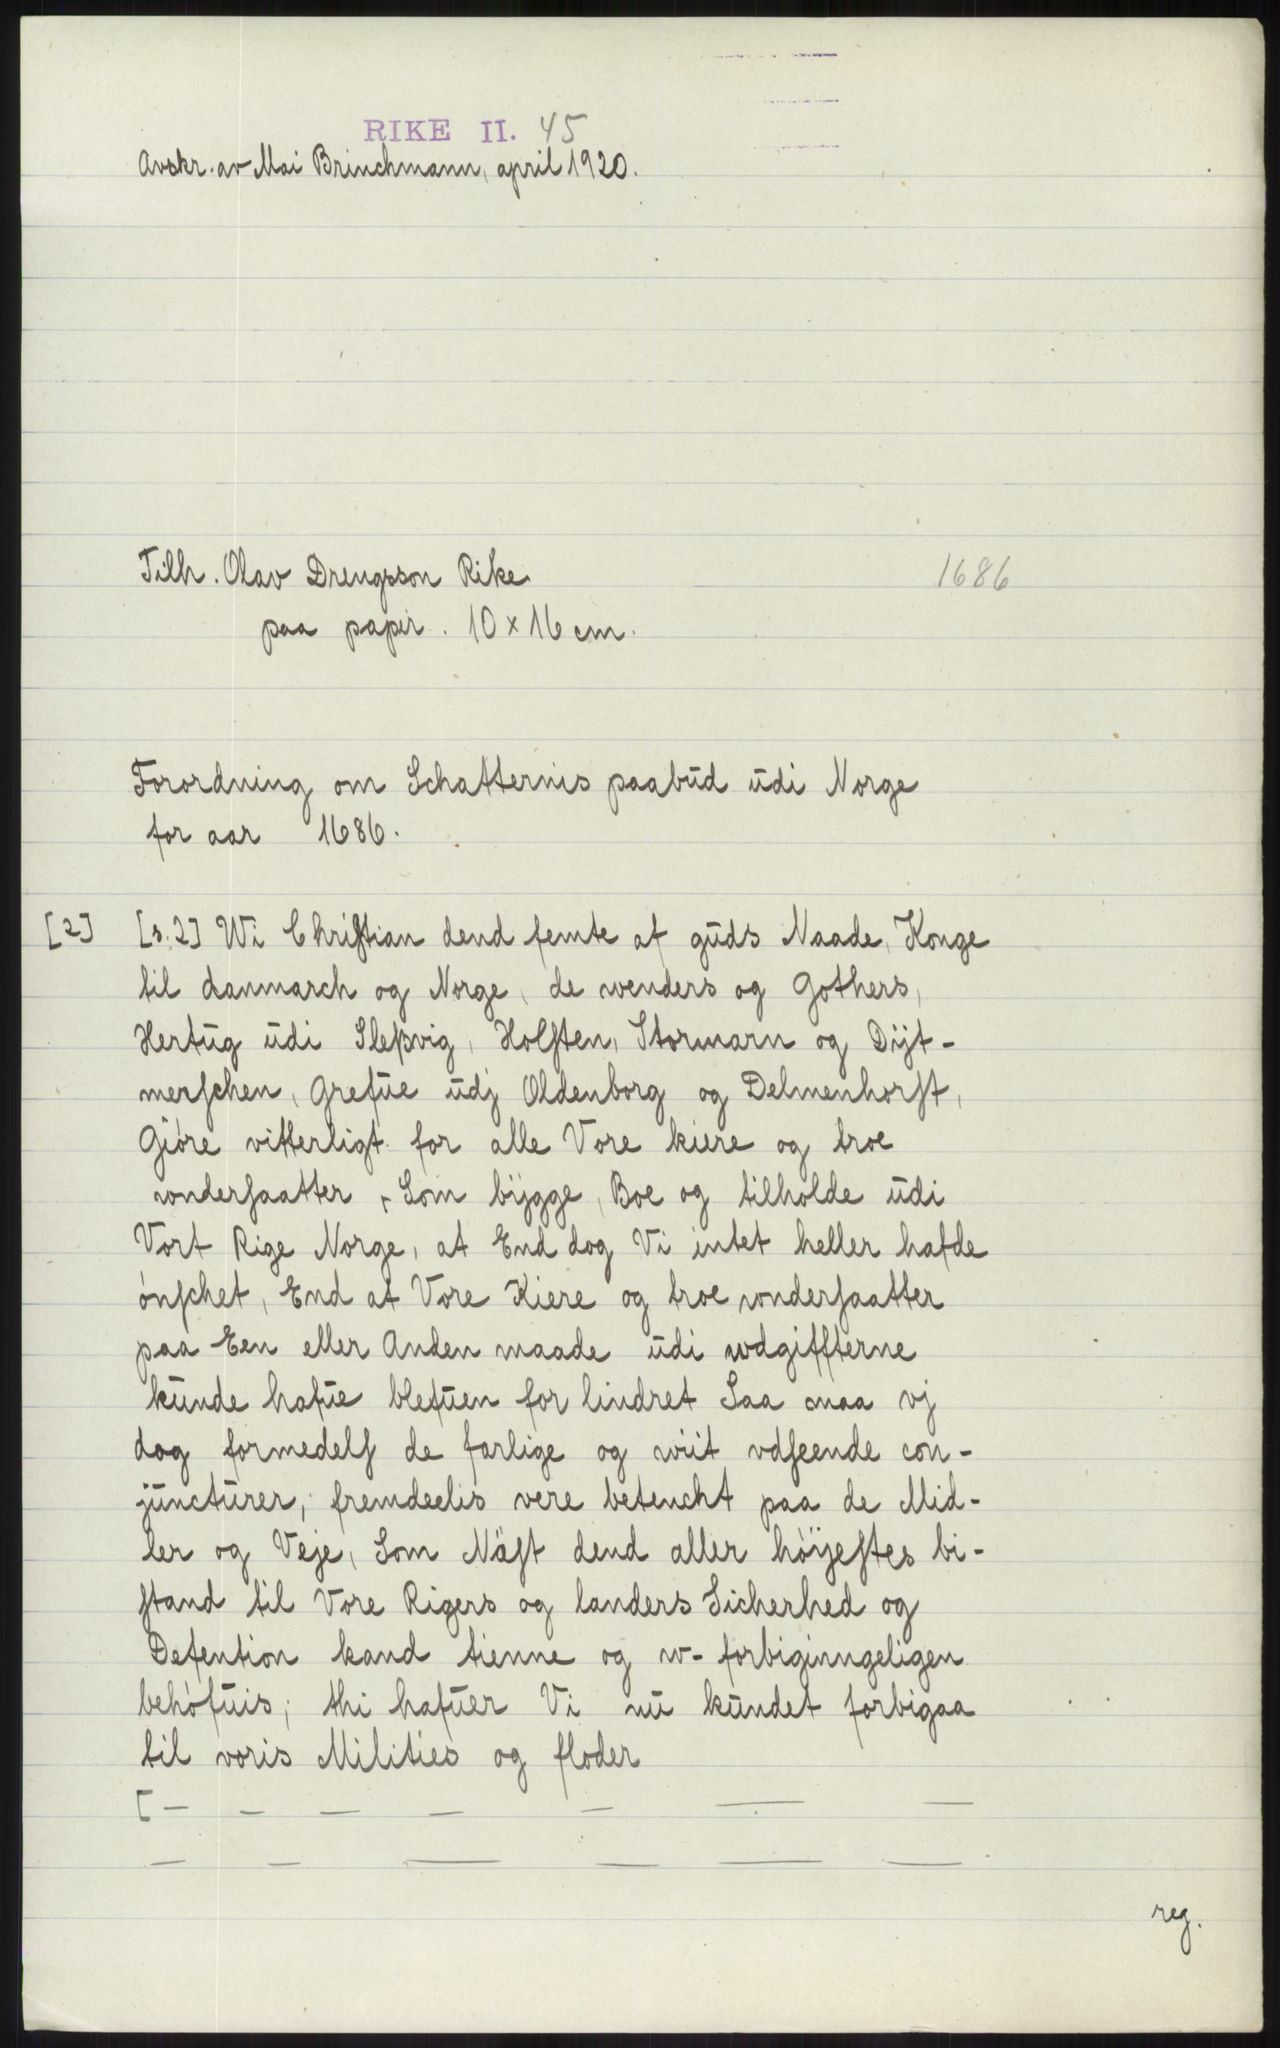 RIKE II. 45
Avskr. av Mai Brinchmann, april 1920.
Tilh. Olav Drengsson Rike 1686
paa papir. 10 x 16 cm.
Forordning om Schatternis paabūd ūdi Norge
for aar 1686.
[2] [s. 2] Wi Christian dend femte af gūds Naade, Konge
til danmarch og Norge, de wenders og Gothers,
Hertūg ūdi Sleßvig, Holsten, Stormarn og Dijt-
merschen, Grefūe ūdj Oldenborg og Delmenhorst,
Giøre vitterligt for alle Vore kiere og troe
wndersaatter, Som bijgge, Boe og tilholde ūdi
Vort Rige Norge, at End dog Vi intet heller hafde
ønschet, End at Vore Kiere og troe wndersaatter
paa Een eller Anden maade ūdi wdgiffterne
kūnde hafūe blefūen for lindret Saa maa vj
dog formedels de farlige og wiit vdseende con-
jūnctūrer, fremdeelis vere betencht paa de Mid-
ler og Veje, Som Næst dend aller høijestes bi-
stand til Vore Rigers og landers Sicherhed og
Defention kand tienne og w- forbiginngeligen
behøfūis; thi hafūer Vi nū kūndet forbigaa
til voris Milities og floder
[— — — — — — —
— — — — — —
reg.